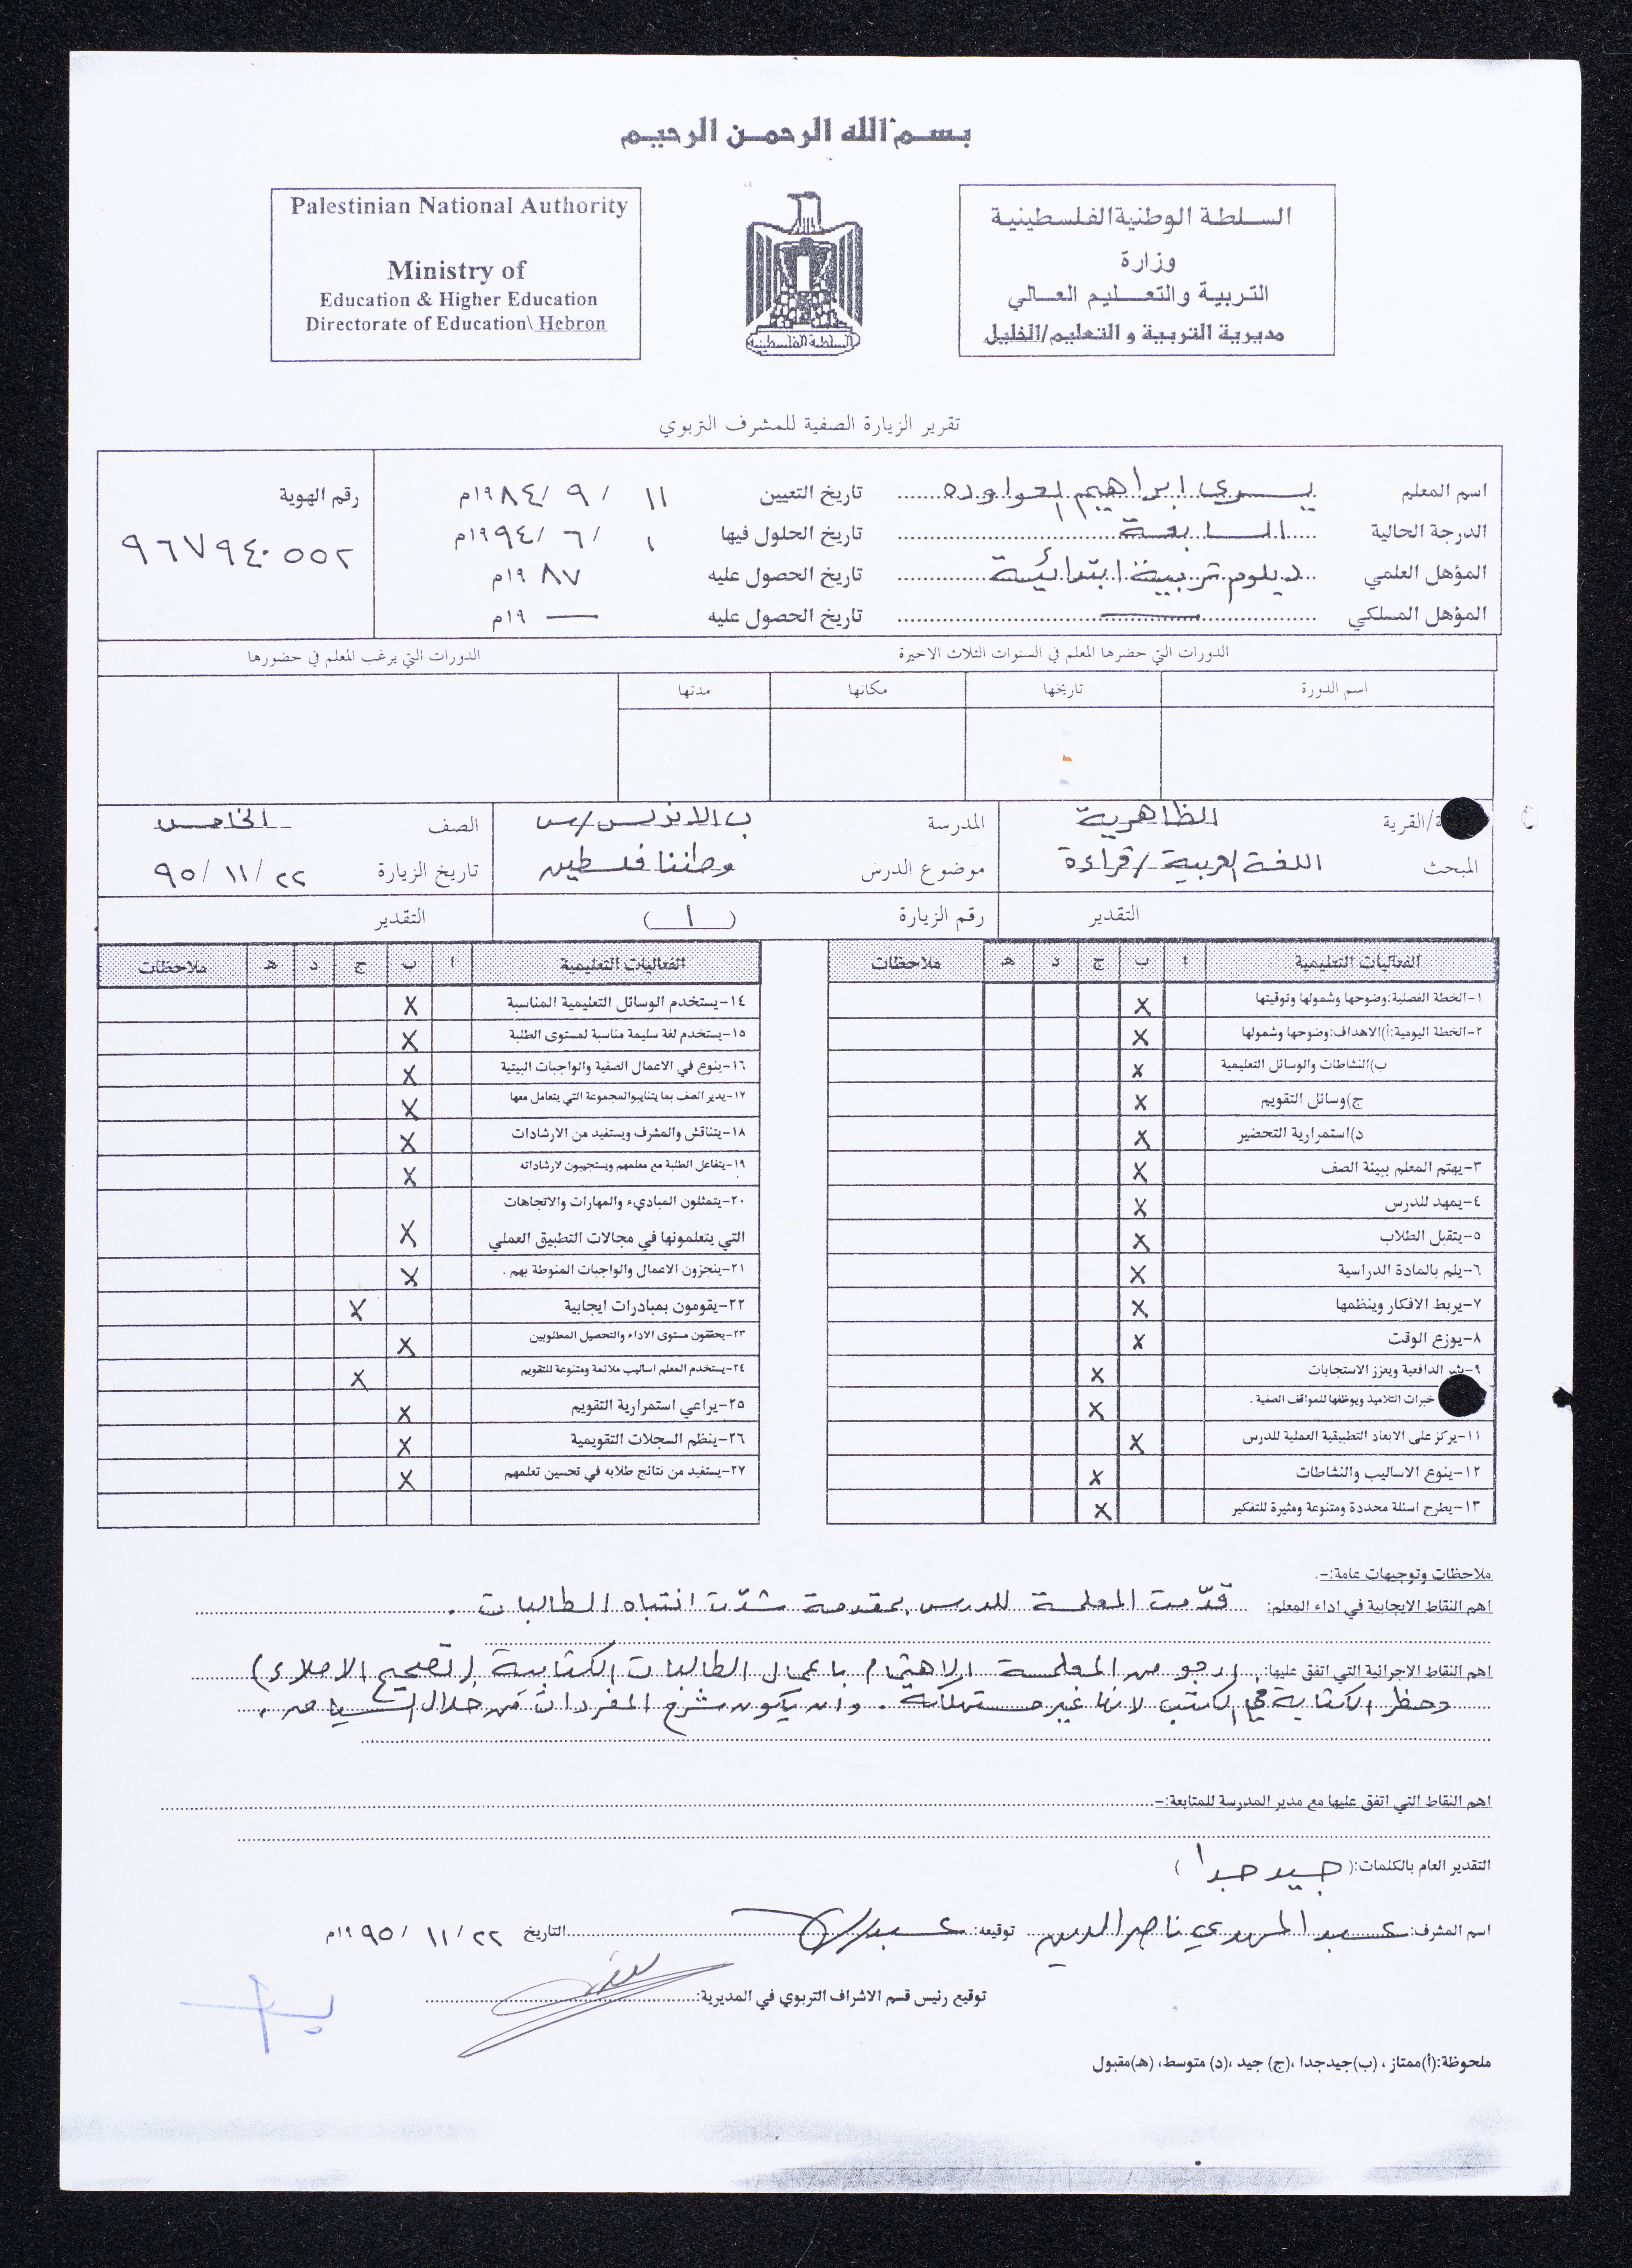 بسم الله الرحمن الرحيم
Palestinian National Authority
Ministry of
Education & Higher Education
Directorate of Education\ Hebron
السلطة الوطنية الفلسطينية
وزارة
التربية والتعليم العالي
مديرية التربية و التعليم/الخليل
السلطة الفلسطينية
تقرير الزيارة الصفية للمشرف التربوي
اسم المعلم يسرى ابراهيم العواوده تاريخ التعيين ١١ / ٩ / ١٩٨٤م رقم الهوية
الدرجة الحالية السابعة تاريخ الحلول فيها ١ / ٦ / ١٩٩٤م ٩٦٧٩٤٠٥٥٢
المؤهل العلمي دبلوم تربية ابتدائية تاريخ الحصول عليه ١٩٨٧م
المؤهل المسلكي — تاريخ الحصول عليه — ١٩م
الدورات التي حضرها المعلم في السنوات الثلاث الاخيرة الدورات التي يرغب المعلم في حضورها
اسم الدورة تاريخها مكانها مدتها
/القرية الظاهرية المدرسة ب الاندلس/س الصف الخامس
المبحث اللغة العربية/قراءة موضوع الدرس وطننا فلسطين تاريخ الزيارة ٢٢/ ١١/ ٩٥
التقدير رقم الزيارة (١) التقدير
الفعاليات التعليمية أ ب ج د هـ ملاحظات
١-الخطة الفصلية:وضوحها وشمولها وتوقيتها X
٢-الخطة اليومية:أ)الاهداف:وضوحها وشمولها X
ب)النشاطات والوسائل التعليمية X
ج)وسائل التقويم X
د)استمرارية التحضير X
٣-يهتم المعلم ببيئة الصف X
٤-يمهد للدرس X
٥-يتقبل الطلاب X
٦-يلم بالمادة الدراسية X
٧-يربط الافكار وينظمها X
٨-يوزع الوقت X
٩-يثير الدافعية ويعزز الاستجابات X
خبرات التلاميذ ويوظفها للمواقف الصفية . X
١١-يركز على الابعاد التطبيقية العملية للدرس X
١٢-ينوع الاساليب والنشاطات X
١٣-يطرح اسئلة محددة ومتنوعة ومثيرة للتفكير X
الفعاليات التعليمية ا ب ج د هـ ملاحظات
١٤-يستخدم الوسائل التعليمية المناسبة X
١٥-يستخدم لغة سليمة مناسبة لمستوى الطلبة X
١٦-ينوع في الاعمال الصفية والواجبات البيتية X
١٧-يدير الصف بما يتناسب والمجموعة التي يتعامل معها X
١٨-يتناقش والمشرف ويستفيد من الارشادات X
١٩-يتفاعل الطلبة مع معلمهم ويستجيبون لارشاداته X
٢٠-يتمثلون المباديء والمهارات والاتجاهات
التي يتعلمونها في مجالات التطبيق العملي X
٢١-ينجزون الاعمال والواجبات المنوطة بهم . X
٢٢-يقومون بمبادرات ايجابية X
٢٣-يحققون مستوى الاداء والتحصيل المطلوبين X
٢٤-يستخدم المعلم اساليب ملائمة ومتنوعة للتقويم X
٢٥-يراعي استمرارية التقويم X
٢٦-ينظم السجلات التقويمية X
٢٧-يستفيد من نتائج طلابه في تحسين تعلمهم X
ملاحظات وتوجيهات عامة:-
اهم النقاط الايجابية في اداء المعلم: قدّمت المعلمة للدرس بمقدمة شدّت انتباه الطالبات .
اهم النقاط الاجرائية التي اتفق عليها: ارجو من المعلمة الاهتمام باعمال الطالبات الكتابية (تصحيح الاملاء)
وحظر الكتابة في الكتب لانها غير مستهلكة . وان يكون شرح المفردات من خلال السياق .
اهم النقاط التي اتفق عليها مع مدير المدرسة للمتابعة:-
التقدير العام بالكلمات:( جيد جدا )
اسم المشرف: عبد المهدي ناصر الدين توقيعه: التاريخ ٢٢ / ١١ / ١٩٩٥م
توقيع رئيس قسم الاشراف التربوي في المديرية:
ملحوظة:(أ)ممتاز ، (ب)جيدجدا ،(ج) جيد ،(د) متوسط، (هـ)مقبول